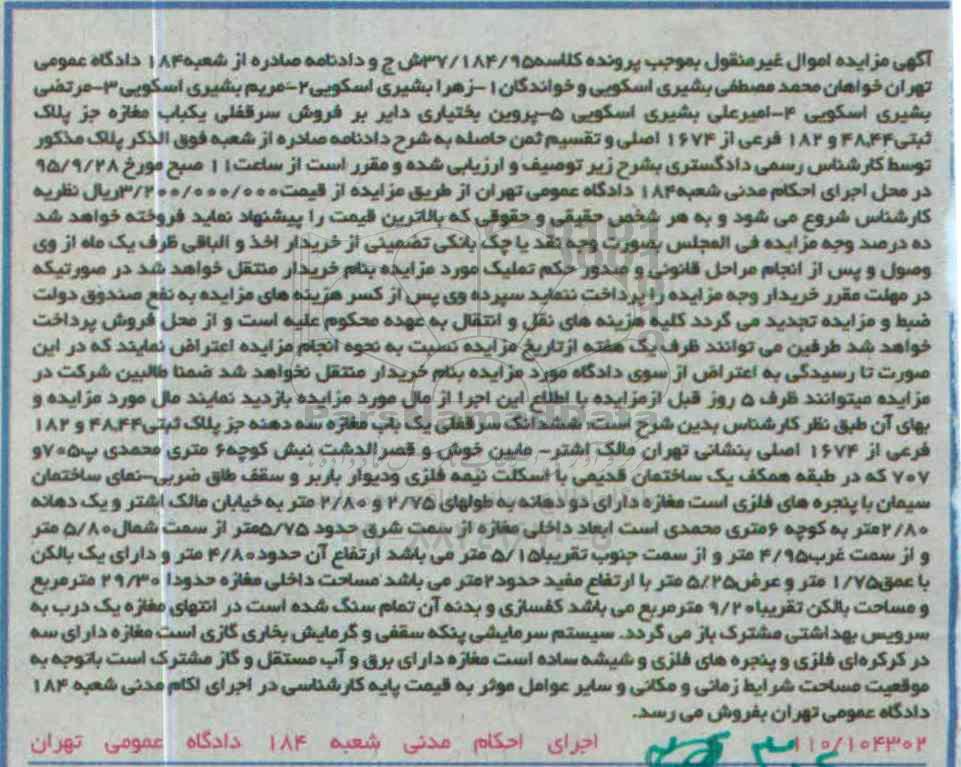 آگهی مزایده اموال غیرمنقول بموجب پرونده کلاسه۳۷/۱۸۴/۹۵ش ج و دادنامه صادره از شعبه۱۸۴ دادگاه عمومی
تهران خواهان محمد مصطفی بشیری اسکویی و خواندگان۱-زهرا بشیری اسکویی۲-مریم بشیری اسکویی۳-مرتضی
بشیری اسکویی ۴-امیرعلی بشیری اسکویی ۵-پروین بختیاری دایر بر فروش سرقفلی یکباب مغازه جز پلاک
ثبتی۴۸،۴۴ و ۱۸۲ فرعی از ۱۶۷۴ اصلی و تقسیم ثمن حاصله به شرح دادنامه صادره از شعبه فوق الذکر پلاک مذکور
توسط کارشناس رسمی دادگستری بشرح زیر توصیف و ارزیابی شده و مقرر است از ساعت۱۱ صبح مورخ ۹۵/۹/۲۸
در محل اجرای احکام مدنی شعبه۱۸۴ دادگاه عمومی تهران از طریق مزایده از قیمت۳/۲۰۰/۰۰۰/۰۰۰ریال نظریه
کارشناس شروع می شود و به هر شخص حقیقی و حقوقی که بالاترین قیمت را پیشنهاد نماید فروخته خواهد شد
ده درصد وجه مزایده فی المجلس بصورت وجه نقد یا چک بانکی تضمینی از خریدار اخذ و الباقی ظرف یک ماه از وی
وصول و پس از انجام مراحل قانونی و صدور حکم تملیک مورد مزایده بنام خریدار منتقل خواهد شد در صورتیکه
در مهلت مقرر خریدار وجه مزایده را پرداخت ننماید سپرده وی پس از کسر هزینه های مزایده به نفع صندوق دولت
ضبط و مزایده تجدید می گردد کلیه هزینه های نقل و انتقال به عهده محکوم علیه است و از محل فروش پرداخت
خواهد شد طرفین می توانند ظرف یک هفته ازتاریخ مزایده نسبت به نحوه انجام مزایده اعتراض نمایند که در این
صورت تا رسیدگی به اعتراض از سوی دادگاه مورد مزایده بنام خریدار منتقل نخواهد شد ضمنا طالبین شرکت در
مزایده میتوانند ظرف ۵ روز قبل ازمزایده با اطلاع این اجرا از مال مورد مزایده بازدید نمایند مال مورد مزایده و
بهای آن طبق نظر کارشناس بدین شرح است: ششدانگ سرقفلی یک باب مغازه سه دهنه جز پلاک ثبتی۴۸،۴۴ و ۱۸۲
فرعی از ۱۶۷۴ اصلی بنشانی تهران مالک اشتر- مابین خوش و قصرالدشت نبش کوچه۶ متری محمدی پ۷۰۵و
۷۰۷ که در طبقه همکف یک ساختمان قدیمی با اسکلت نیمه فلزی ودیوار باربر و سقف طاق ضربی-نمای ساختمان
سیمان با پنجره های فلزی است مغازه دارای دو دهانه به طولهای ۲/۷۵ و ۲/۸۰ متر به خیابان مالک اشتر و یک دهانه
۲/۸۰متر به کوچه ۶متری محمدی است ابعاد داخلی مغازه از سمت شرق حدود ۵/۷۵متر از سمت شمال۵/۸۰ متر
و از سمت غرب۴/۹۵ متر و از سمت جنوب تقریبا۵/۱۵ متر می باشد ارتفاع آن حدود۴/۸۰ متر و دارای یک بالکن
با عمق۱/۷۵ متر و عرض۵/۲۵ متر با ارتفاع مفید حدود۲متر می باشد مساحت داخلی مغازه حدودا ۲۹/۳۰ مترمربع
و مساحت بالکن تقریبا۹/۲۰ مترمربع می باشد کفسازی و بدنه آن تمام سنگ شده است در انتهای مغازه یک درب به
سرویس بهداشتی مشترک باز می گردد. سیستم سرمایشی پنکه سقفی و گرمایش بخاری گازی است مغازه دارای سه
در کرکره‌ای فلزی و پنجره های فلزی و شیشه ساده است مغازه دارای برق و آب مستقل و گاز مشترک است باتوجه به
موقعیت مساحت شرایط زمانی و مکانی و سایر عوامل موثر به قیمت پایه کارشناسی در اجرای اکام مدنی شعبه ۱۸۴
دادگاه عمومی تهران بفروش می رسد.
۱۱۰/۱۰۴۳۰۲ اجرای احکام مدنی شعبه ۱۸۴ دادگاه عمومی تهران
ParsNamadData